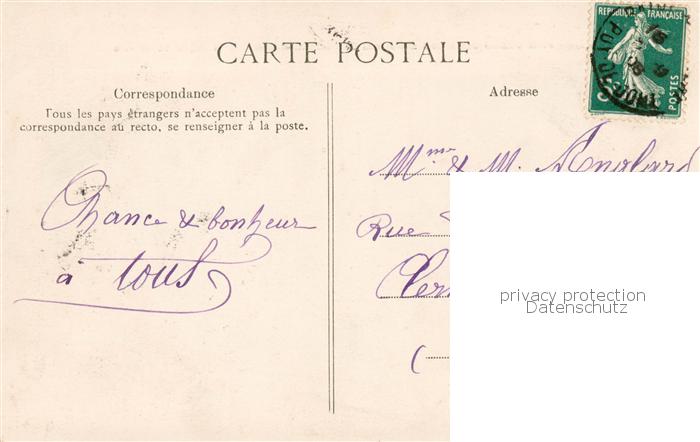 CARTE POSTALE
Correspondance
Tous les pays étrangers n'acceptent pas la
correspondance au recto, se renseigner à la poste.
Adresse
REPUBLIQUE FRANÇAISE
POSTES
PUY
Chance & bonheur
à tous
Mme & M. Anglard
Rue
privacy protection
Datenschutz